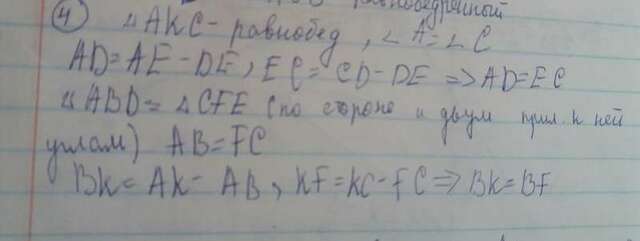 равнобедренный
④ △AKC - равнобед, ∠A = ∠C
AD = AE - DE, EC = CD - DE => AD = EC
△ABD = △CFE (по стороне и двум прил. к ней
углам) AB = FC
BK = AK - AB, KF = KC - FC => BK = BF